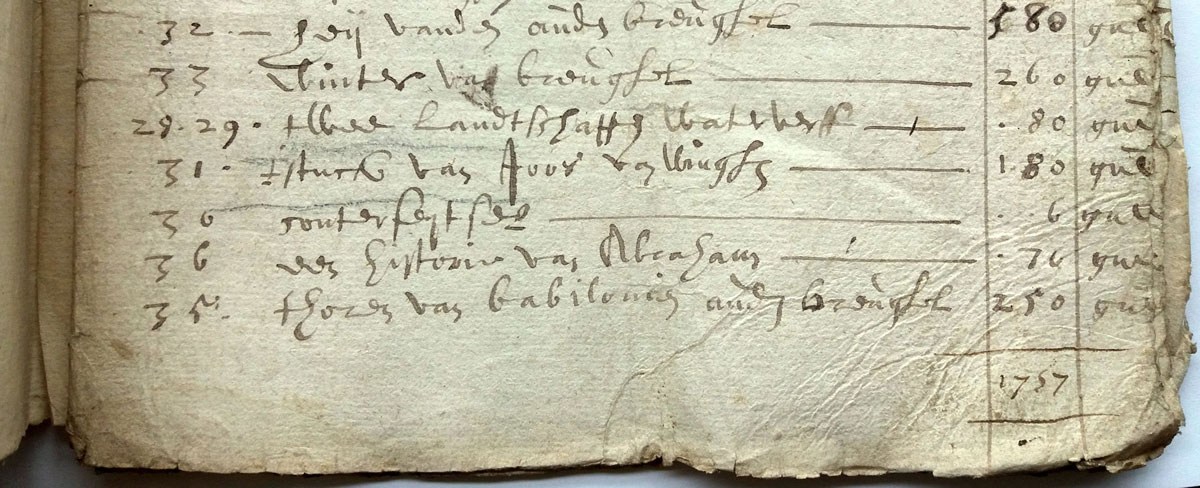 32 — heij vanden auden breughel — 580 gul
33 winter van breughel — 260 gul
28.29. twee Landtschaffen waterverff — 80 gul
31. tstuck van Joos van Winghen — 180 gul
30 conterfeijtsel — 6 gul
36 een historie van Abraham — gul
35. thoren van babilonien auden breughel 250 gul
1757